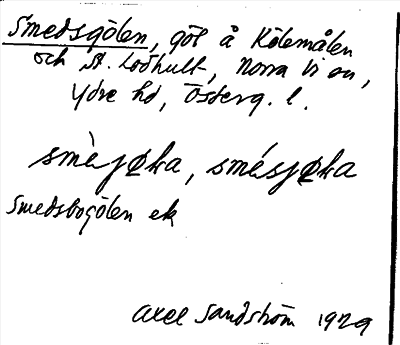 Smedsgölen, göl å Kölemålen
och St. Lövhult, Norra Vi sn,
Ydre hd, Österg. l.
Smedsbogölen ek
Axel Sandström 1929